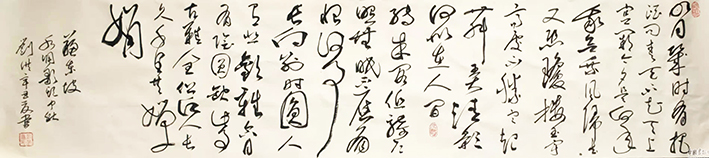 明月幾时有把
酒问青天不知天上
宫阙今夕是何年
我欲乘风归去
又恐瓊楼玉宇
高处不勝寒起
舞弄清影
何似在人间
转朱阁低绮户
照无眠不应有
恨何事
长向别时圆人
有悲歡離合月
有阴晴圆缺此事
古難全但願人长
久千里共嬋
娟
蘇东坡
水调歌头中秋
劉洪辛丑夏书